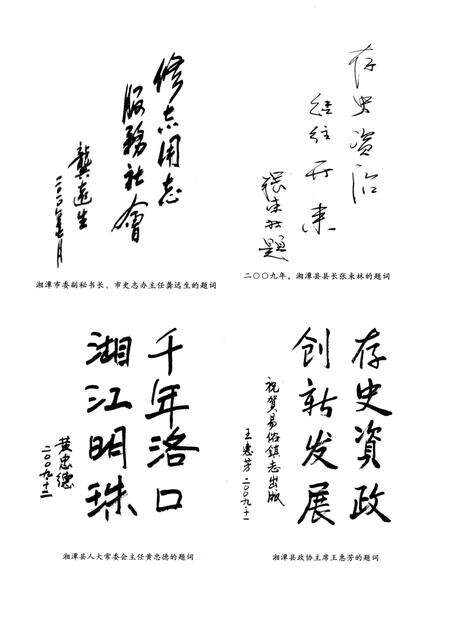 修志用志
服務社會
龔遠生
湘潭市委副秘书长、市史志办主任龚远生的题词
存史资治
继往开来
张来林题
二〇〇九年，湘潭县县长张来林的题词
千年洛口
湘江明珠
黄忠德
二〇〇九·十二
湘潭县人大常委会主任黄忠德的题词
存史資政
创新发展
祝賀易俗鎮志出版
王惠芳 二〇〇九·十一
湘潭县政协主席王惠芳的题词